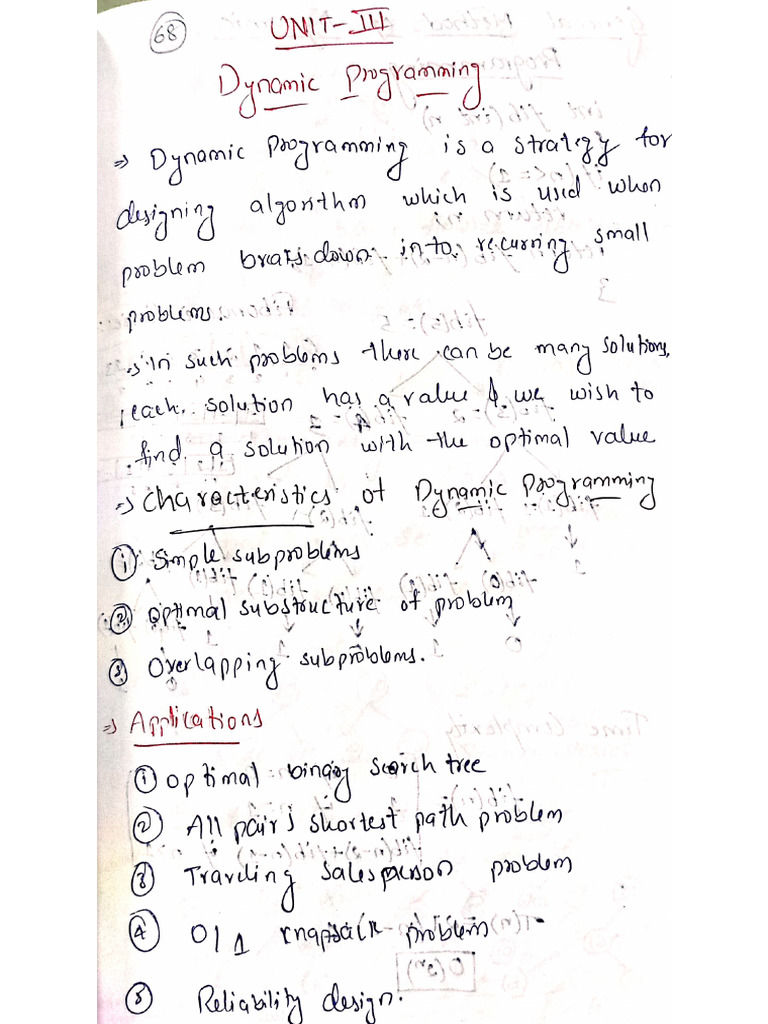 68
UNIT-III
Dynamic Programming
⇒ Dynamic Programming is a strategy for
designing algorithm which is used when
problem breaks down into recurring small
problems.
⇒ In such problems there can be many solutions,
each solution has a value & we wish to
find a solution with the optimal value
⇒ Characteristics of Dynamic Programming
① Simple subproblems
② Optimal substructure of problem
③ Overlapping subproblems.
⇒ Applications
① Optimal binary search tree
② All pair's shortest path problem
③ Traveling salesperson problem
④ 0/1 knapsack problem
⑤ Reliability design.